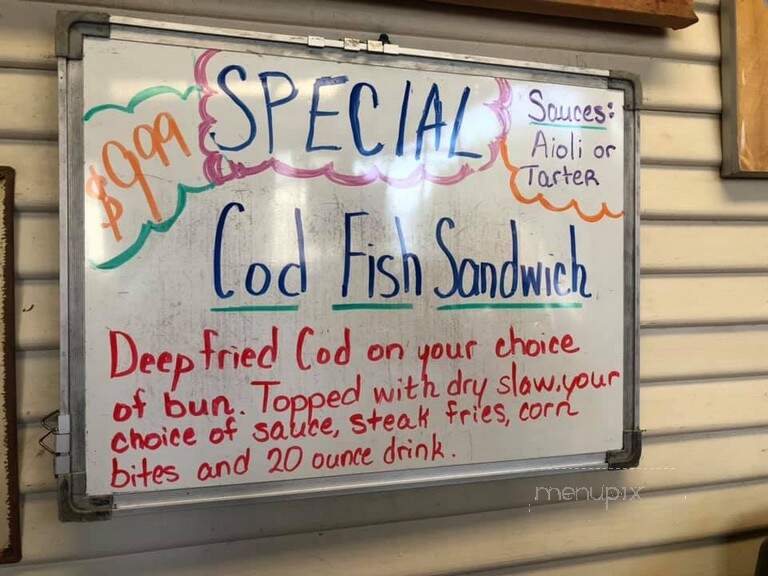 $9.99
SPECIAL
Sauces:
Aioli or
Tarter
Cod Fish Sandwich
Deep fried Cod on your choice
of bun. Topped with dry slaw. your
choice of sauce, steak fries, corn
bites and 20 ounce drink.
menupix